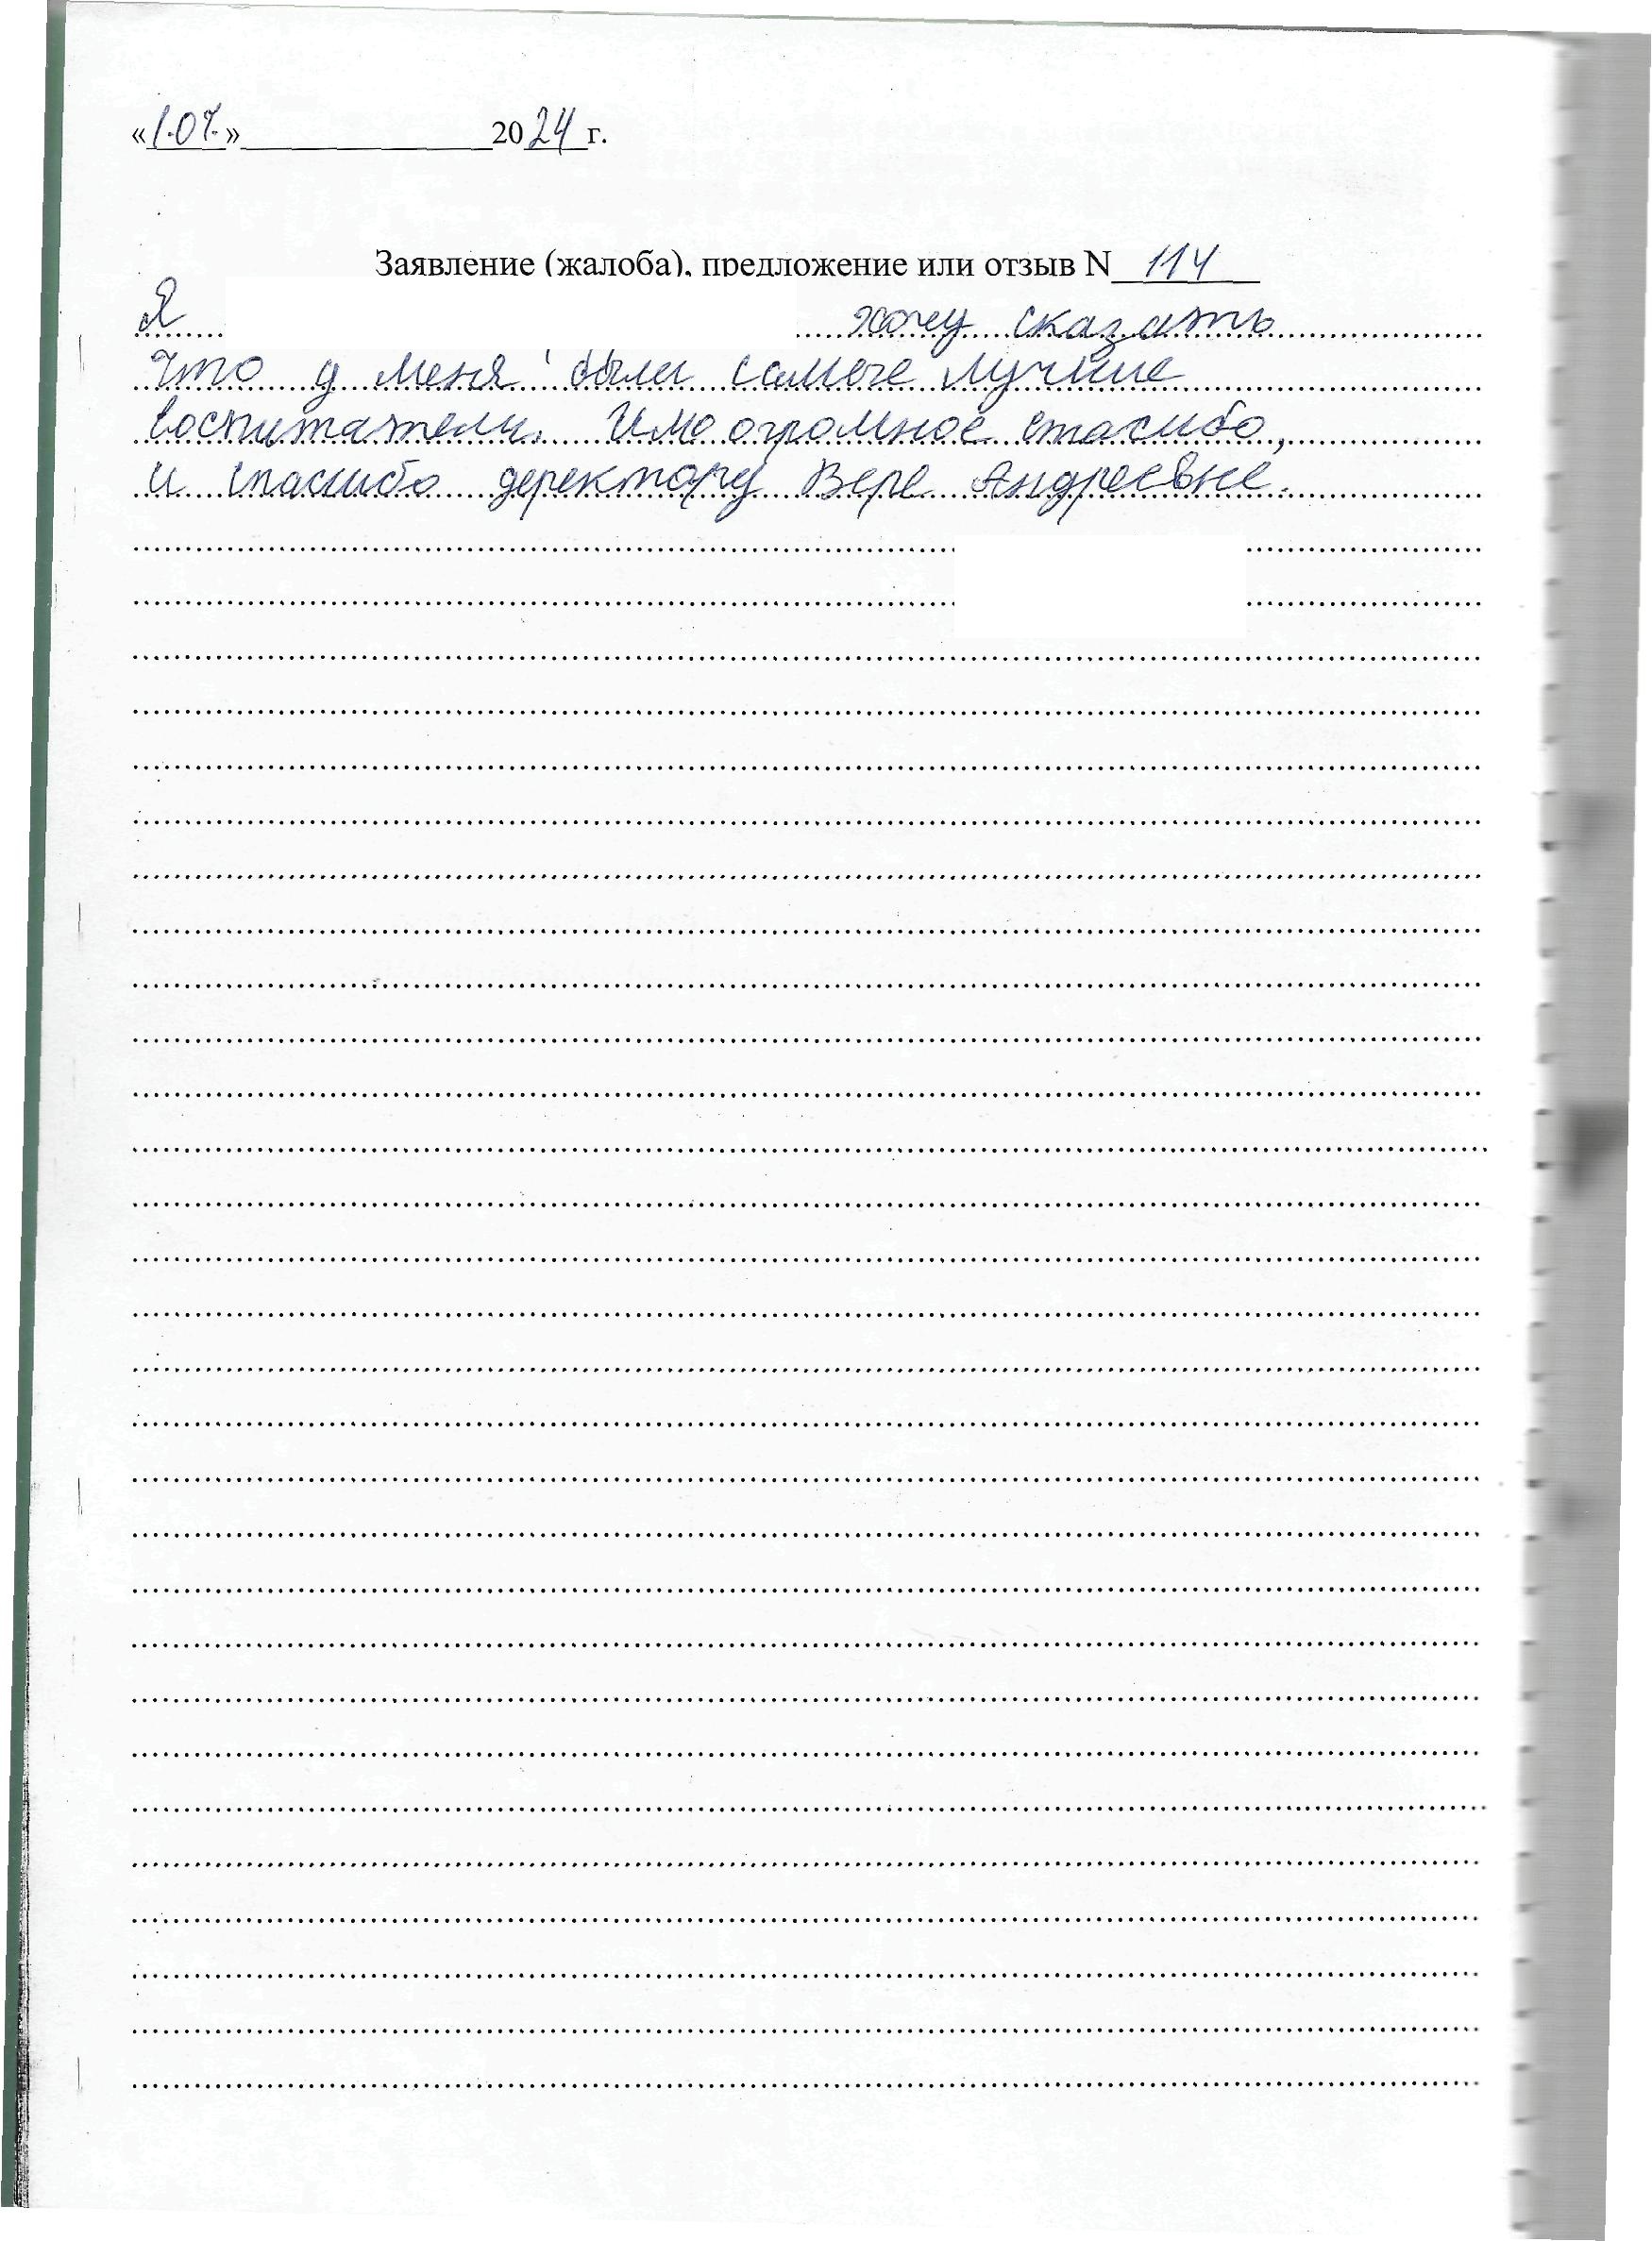 «1.07.» 2024 г.
Заявление (жалоба), предложение или отзыв N 114
Я хочу сказать
что у меня были самые лучшие
воспитатели. Имо огромное спасибо,
и спасибо деректору Вере Андреевне.